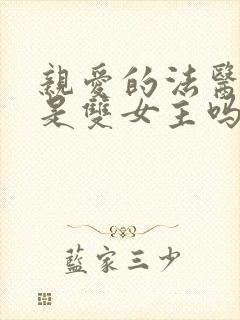 親愛的法醫
是雙女主吗
藍家三少